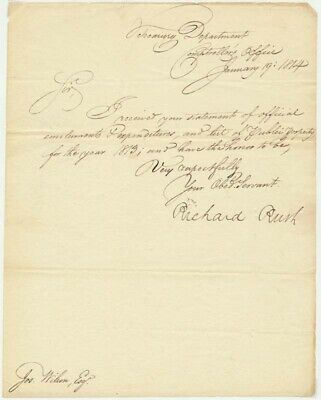 Treasury Department
Comptroller's Office
January 19: 1814
Sir,
I received your statement of official
emoluments & expenditures, and list of Public Property
for the year 1813; and have the honor to be,
Very respectfully
Your Obed. Servant
Richard Rush
Jos. Wilson, Esq.